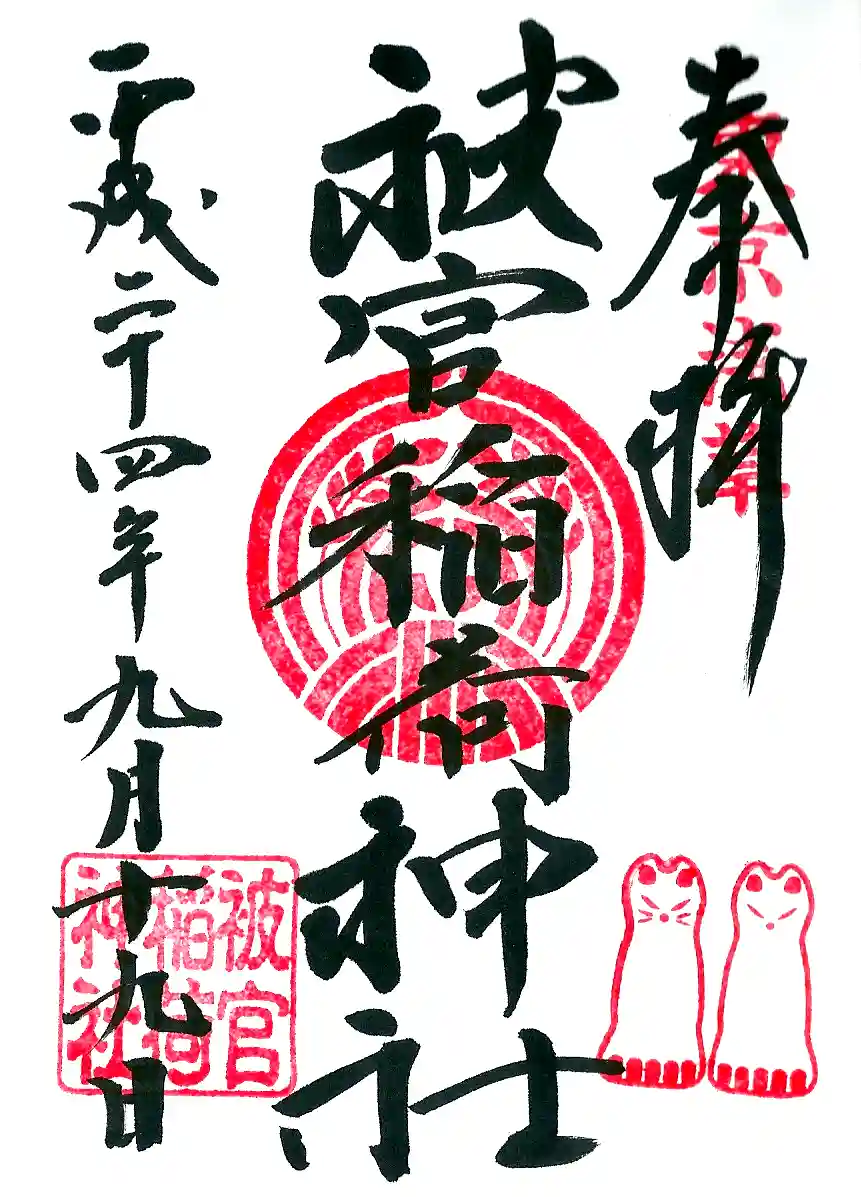 奉拝
東京浅草
被官稲荷神社
平成二十四年九月十九日
被官
稲荷
神社